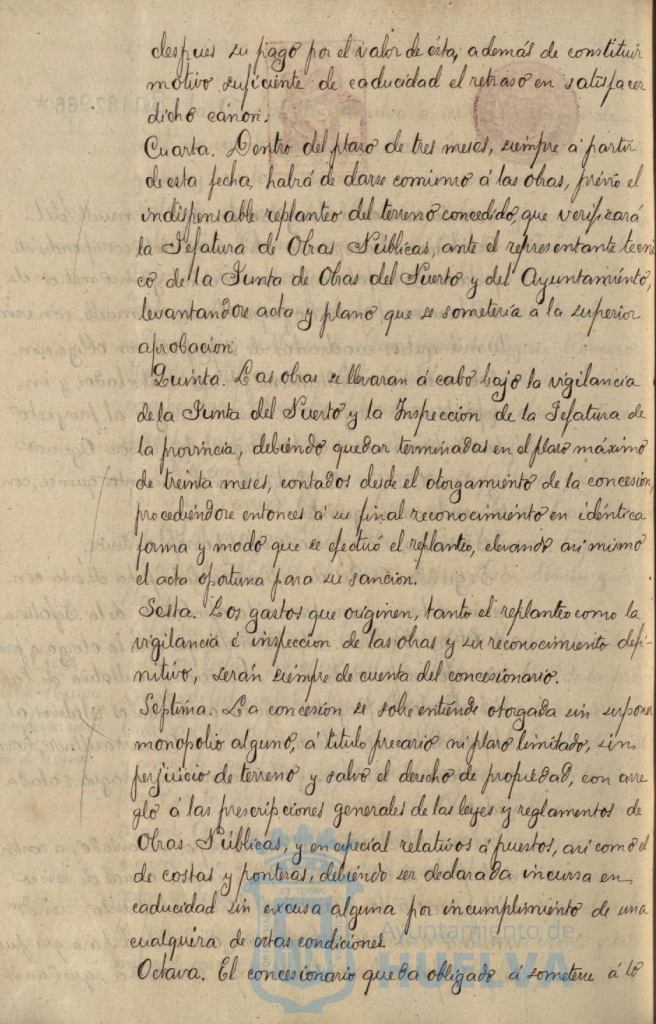 despues su pago por el valor de ésta, además de constituir
motivo suficiente de caducidad el retraso en satisfacer
dicho cánon.
Cuarta. Dentro del plazo de tres meses, siempre á partir
de esta fecha, habrá de darse comienzo á las obras, prévio el
indispensable replanteo del terreno concedido, que verificará
la Jefatura de Obras Públicas, ante el representante tecni
co de la Junta de Obras del Puerto y del Ayuntamiento,
levantandose acta y plano que se sometería á la superior
aprobacion.
Quinta. Las obras se llevaran á cabo bajo la vigilancia
de la Junta del Puerto y la Inspeccion de la Jefatura de
la provincia, debiendo quedar terminadas en el plazo máximo
de treinta meses, contados desde el otorgamiento de la concesion,
procediéndose entonces á su final reconocimiento en idéntica
forma y modo que se efectuó el replanteo, elevando asi mismo
el acta oportuna para su sancion.
Sesta. Los gastos que originen, tanto el replanteo como la
vigilancia é inspeccion de las obras y su reconocimiento defi-
nitivo, serán siempre de cuenta del concesionario.
Septima. La concesion se sobre entiende otorgada sin suponer
monopolio alguno, á titulo precario ni plazo limitado, sin
perjuicio de terreno y salvo el derecho de propiedad, con arre
glo á las prescripciones generales de las leyes y reglamentos de
Obras Públicas, y en especial relativos á puestos, asi como el
de costas y ponteras, debiendo ser declarada incursa en
caducidad sin excusa alguna por incumplimiento de una
cualquiera de estas condiciones.
Octava. El concesionario queda obligado á someterse á lo
Ayuntamiento de
HUELVA